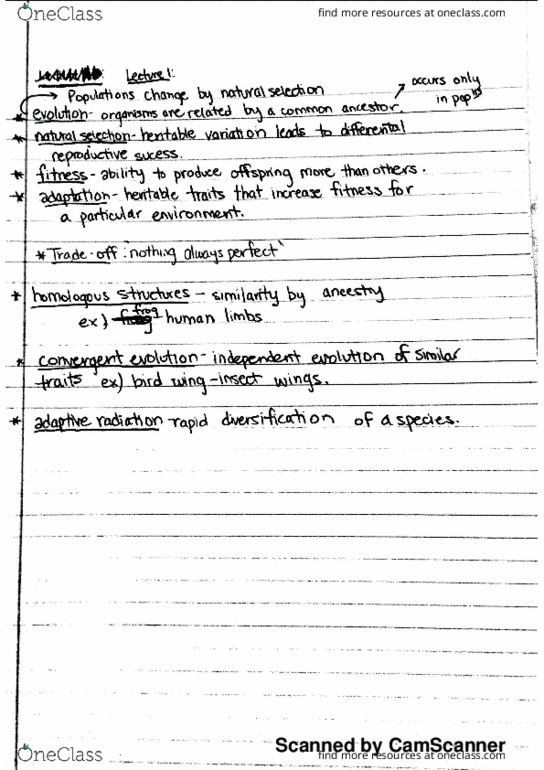 OneClass
find more resources at oneclass.com
Lecture 1:
occurs only
in pop
Populations change by natural selection
* evolution - organisms are related by a common ancestor.
* natural selection - heritable variation leads to differental
reproductive sucess.
* fitness - ability to produce offspring more than others.
* adaptation - heritable traits that increase fitness for
a particular environment.
* Trade-off: "nothing always perfect"
* homologous structures - similarity by ancestry
ex) frog human limbs
* convergent evolution - independent evolution of similar
traits ex) bird wing - insect wings.
* adaptive radiation rapid diversification of a species.
Scanned by CamScanner
OneClass
find more resources at oneclass.com